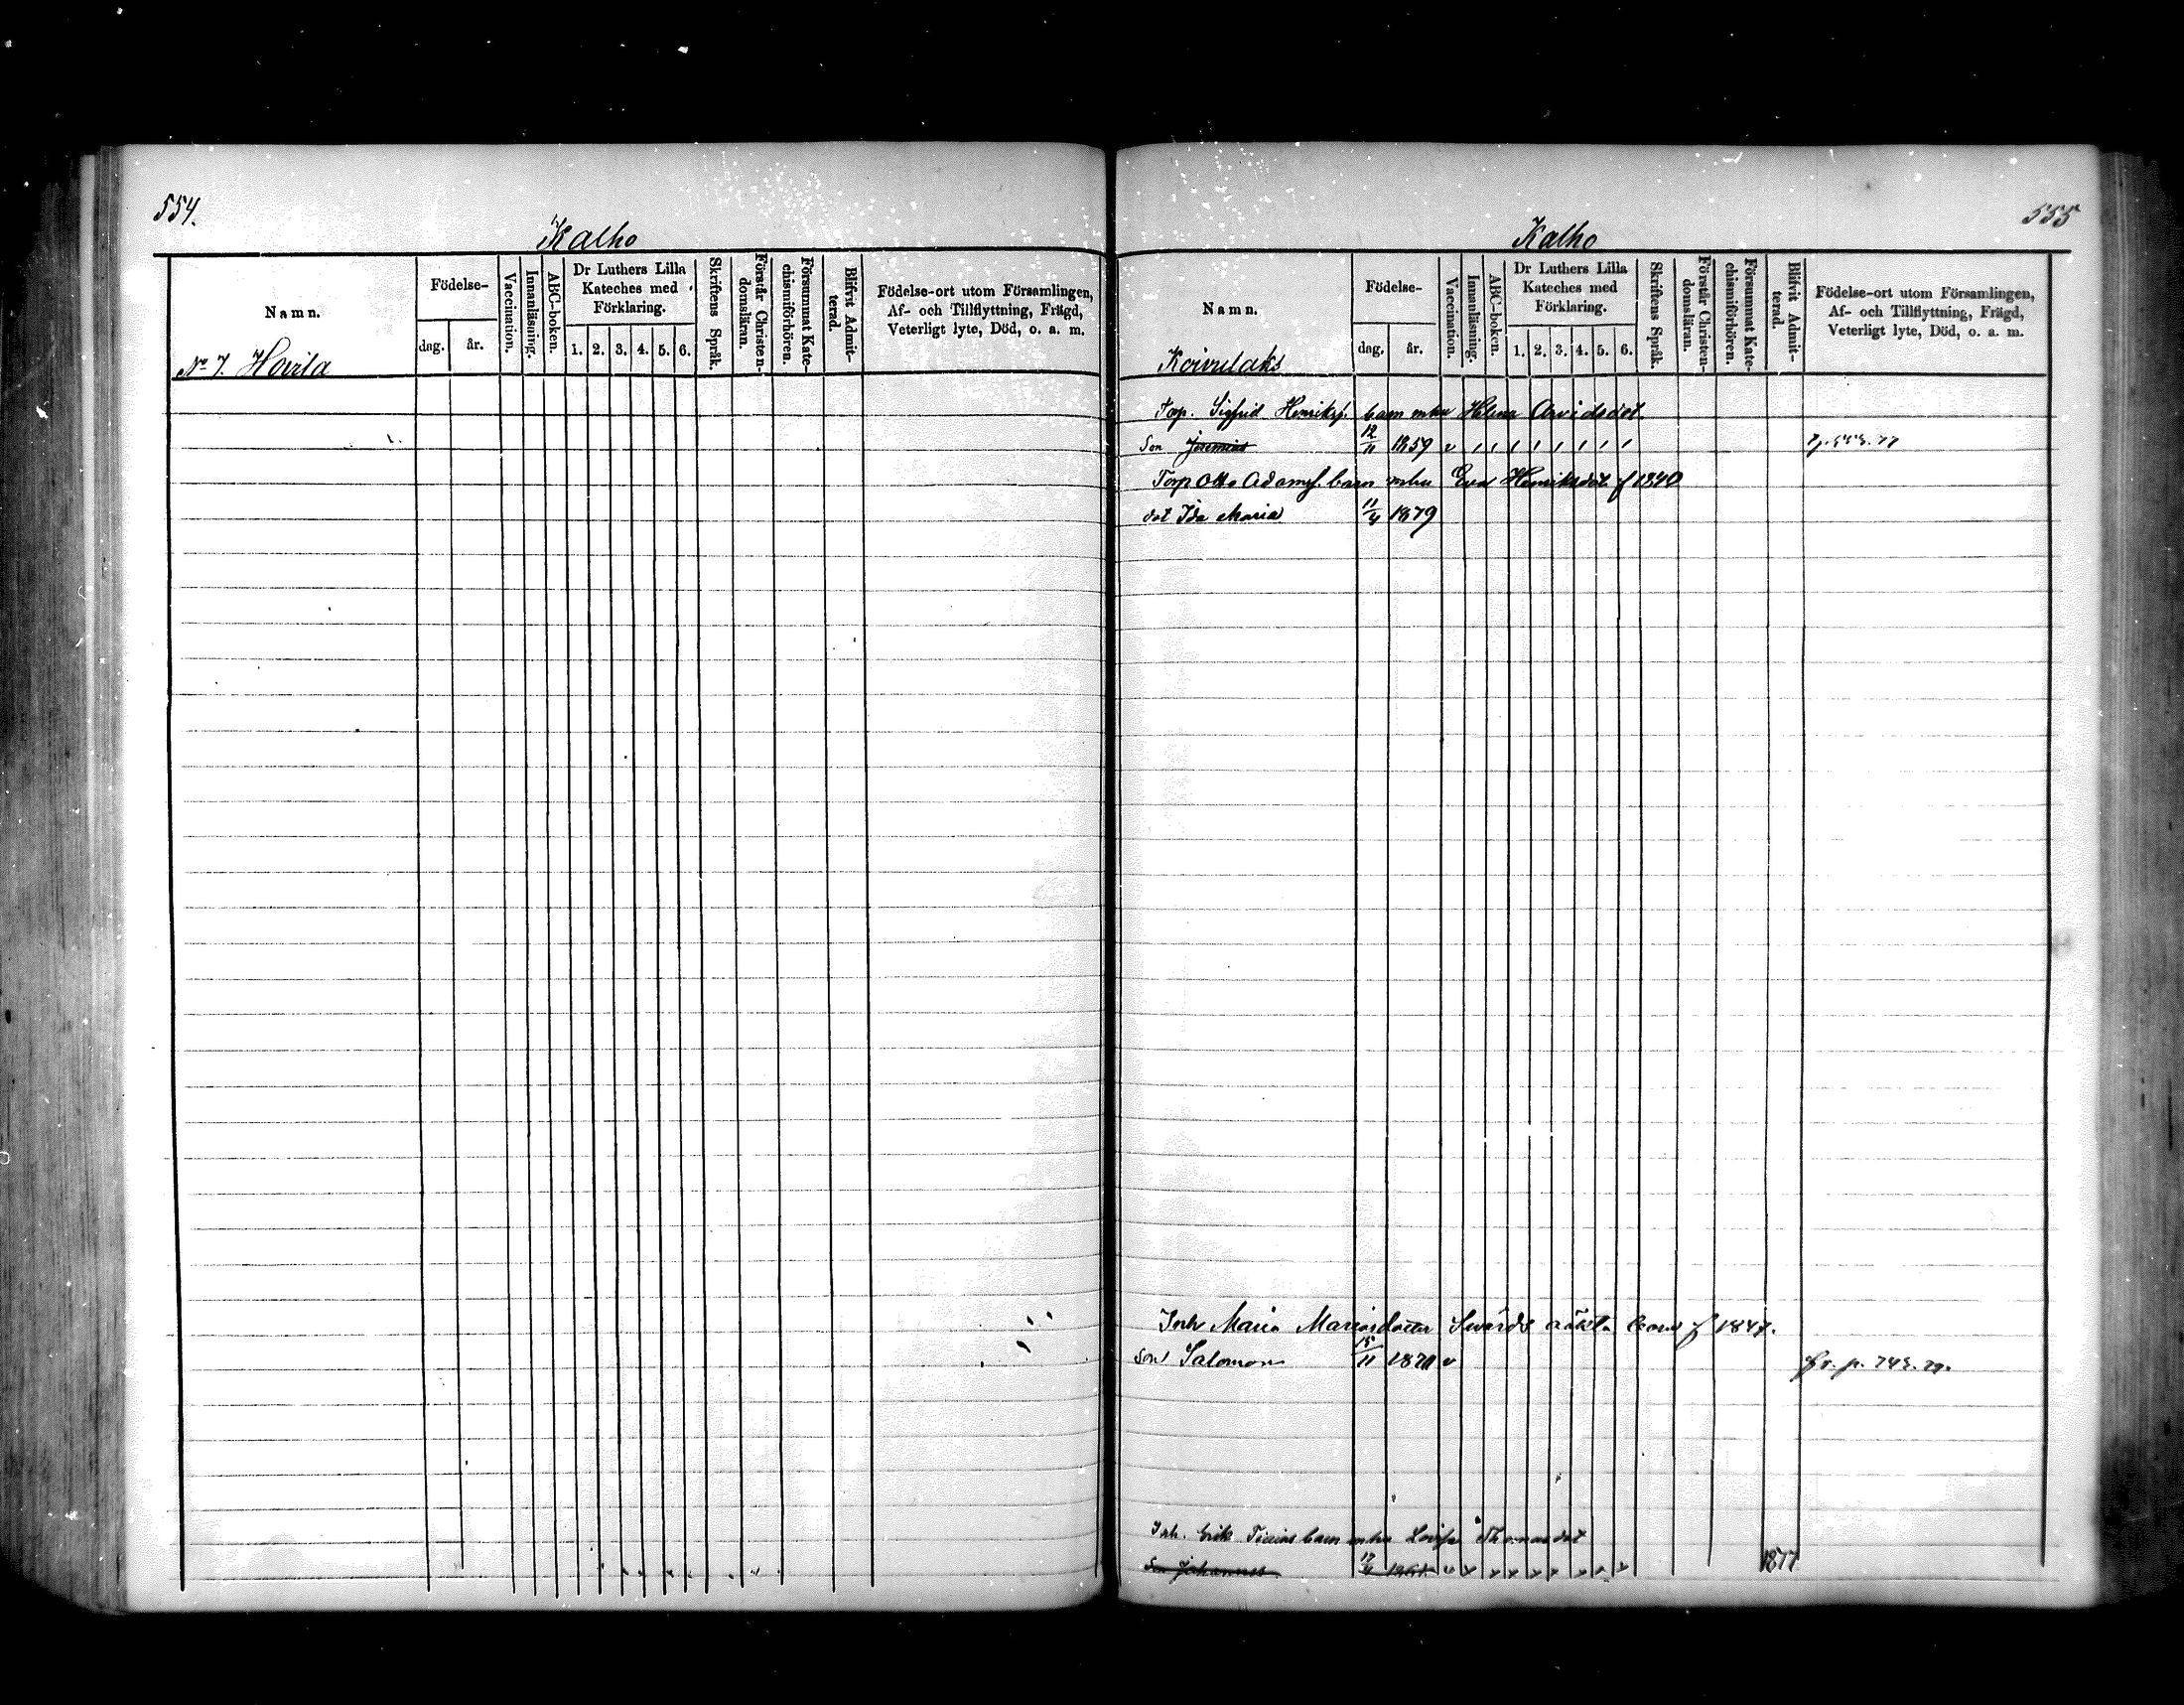 554.
Kalho
Namn.
Födelse-
dag.
år.
Vaccination.
Innanläsning.
ABC-boken.
Dr Luthers Lilla
Kateches med
Förklaring.
1. 2. 3. 4. 5. 6.
Skriftens Språk.
Förstår Christen-
domsläran.
Försummat Kate-
chismiförhören.
Blifvit Admit-
terad.
Födelse-ort utom Församlingen,
Af- och Tillflyttning, Frägd,
Veterligt lyte, Död, o. a. m.
No 7. Hovila
555
Kalho
Namn.
Födelse-
dag.
år.
Vaccination.
Innanläsning.
ABC-boken.
Dr Luthers Lilla
Kateches med
Förklaring.
1. 2. 3. 4. 5. 6.
Skriftens Språk.
Förstår Christen-
domsläran.
Försummat Kate-
chismiförhören.
Blifvit Admit-
terad.
Födelse-ort utom Församlingen,
Af- och Tillflyttning, Frägd,
Veterligt lyte, Död, o. a. m.
Koivulaks
Torp. Sigfrid Henriksf. barn mhu Helena Arvidsdot
Son Jeremias 12/11 1859 v
Torp Otto Adamsf. barn mhu Eva Henriksdot f 1840
dot Ida Maria 11/4 1879
Inh Maria Mariasdotter Swärds oäkta barn f 1847.
Son Salomon 15/11 1871 v
Inh. Erik barn mhu Lovisa Thomasdot
Son Johannes 1877